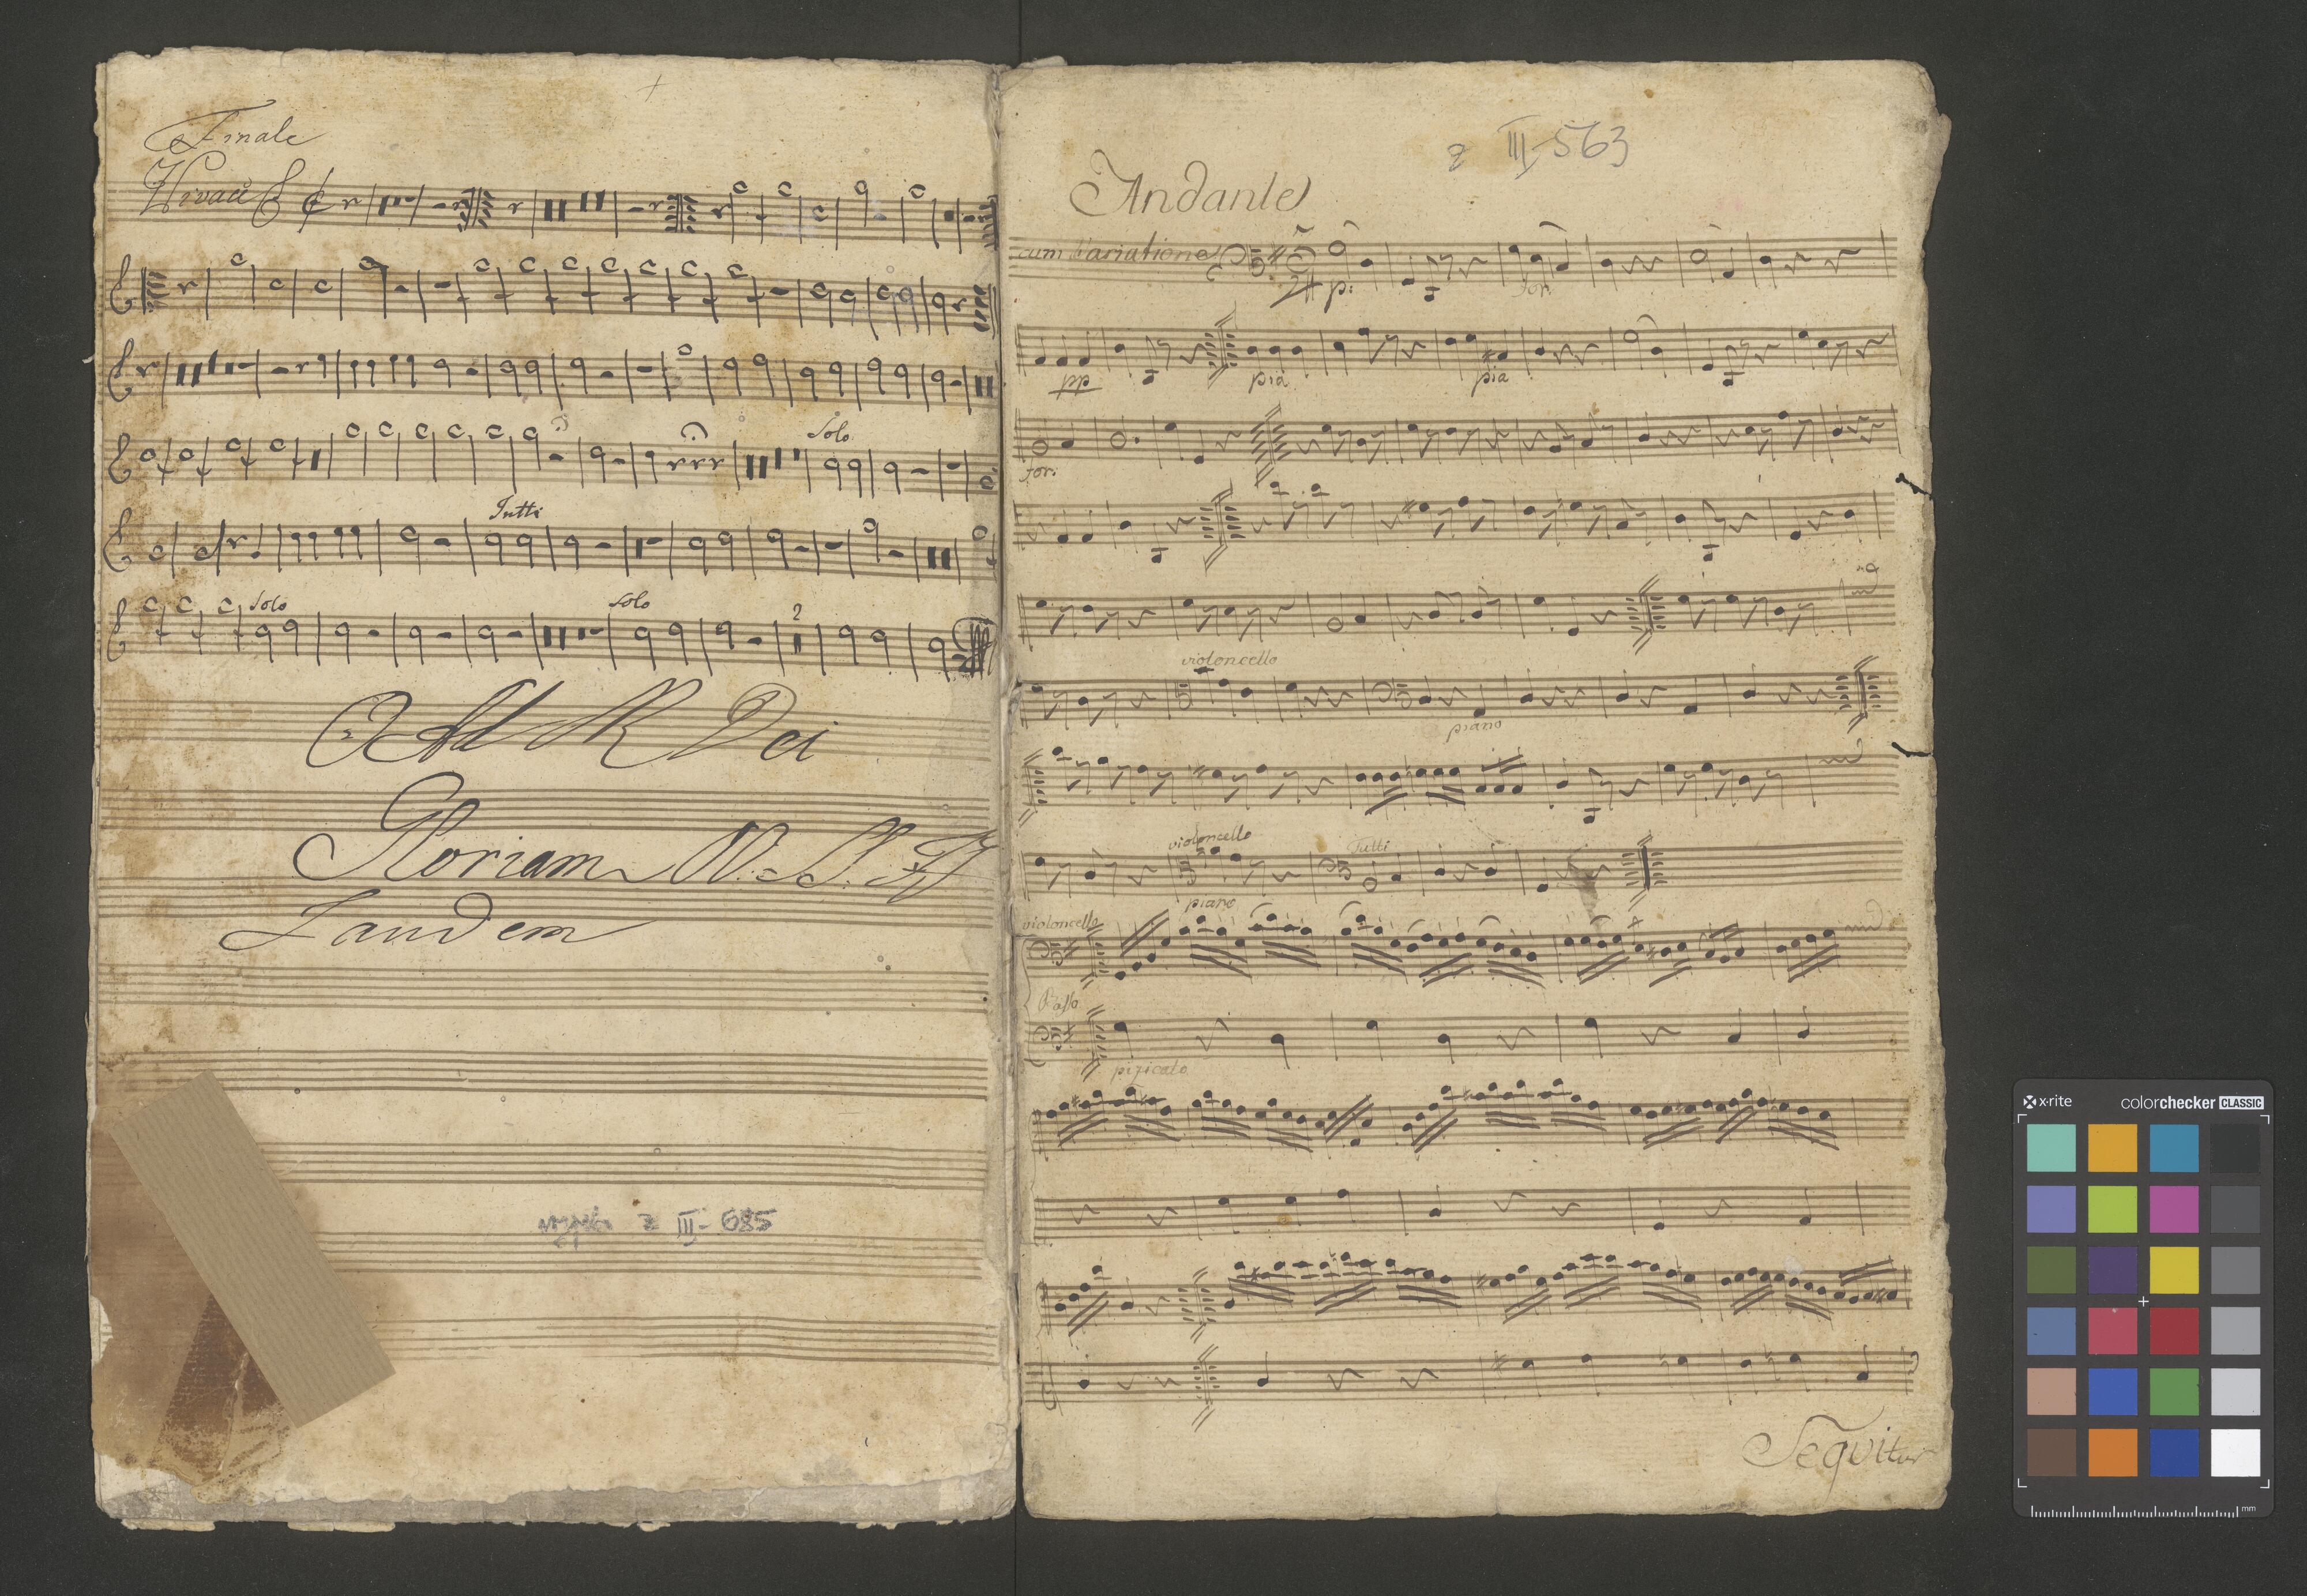 Finale
Vivace
Solo
Tutti
Solo
Solo
2
O A M Dei
Gloriam
Laudem
z III-685
z III-563
Andante
cum Variatione
p:
for:
pp
pia
pia
for:
violoncello
piano
violoncello
Tutti
piano
violoncello
Basso
pizicato
Sequitur
x-rite
colorchecker CLASSIC
mm